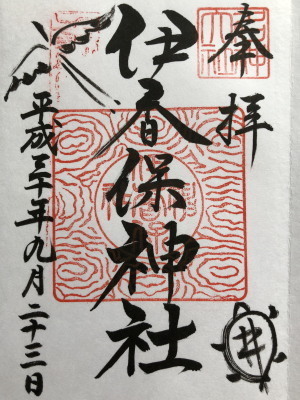 奉拝
伊香保神社
平成三十年九月二十三日
井